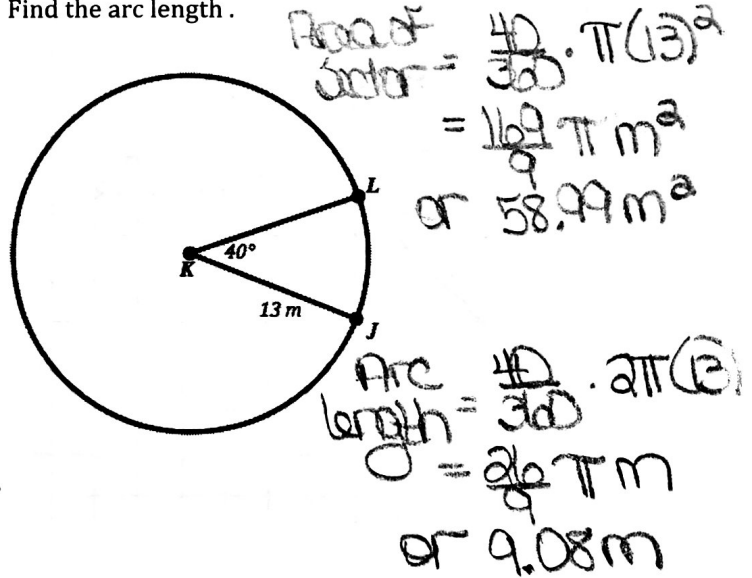 Find the arc length .
Area of sector = 40/360 · π(13)²
= 169/9 π m²
or 58.99 m²
L
40°
K
13 m
J
Arc length = 40/360 · 2π(13)
= 26/9 π m
or 9.08 m